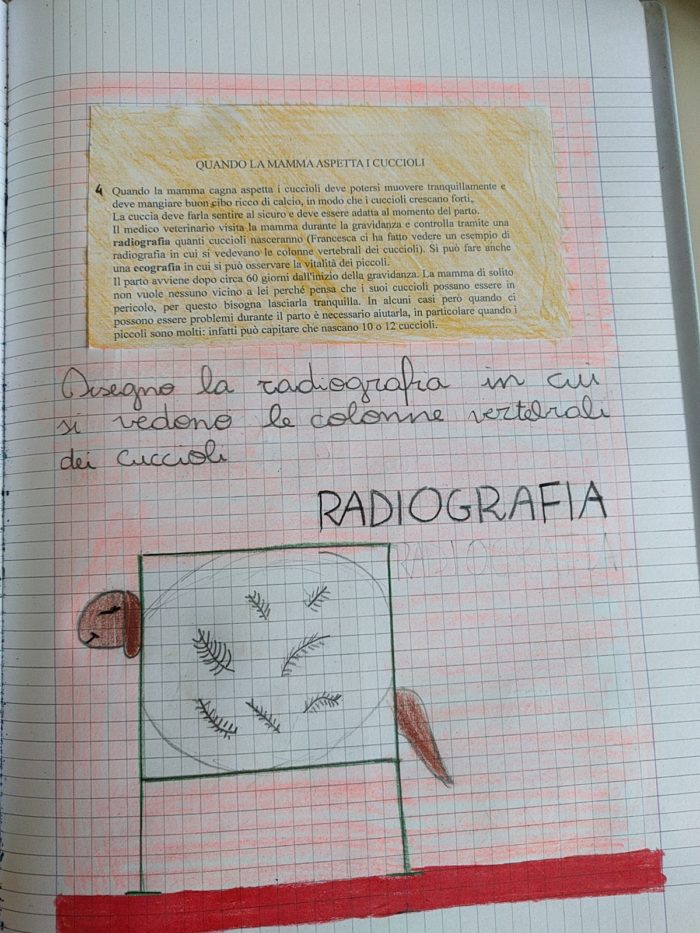 QUANDO LA MAMMA ASPETTA I CUCCIOLI
4 Quando la mamma cagna aspetta i cuccioli deve potersi muovere tranquillamente e
deve mangiare buon cibo ricco di calcio, in modo che i cuccioli crescano forti.
La cuccia deve farla sentire al sicuro e deve essere adatta al momento del parto.
Il medico veterinario visita la mamma durante la gravidanza e controlla tramite una
radiografia quanti cuccioli nasceranno (Francesca ci ha fatto vedere un esempio di
radiografia in cui si vedevano le colonne vertebrali dei cuccioli). Si può fare anche
una ecografia in cui si può osservare la vitalità dei piccoli.
Il parto avviene dopo circa 60 giorni dall'inizio della gravidanza. La mamma di solito
non vuole nessuno vicino a lei perché pensa che i suoi cuccioli possano essere in
pericolo, per questo bisogna lasciarla tranquilla. In alcuni casi però quando ci
possono essere problemi durante il parto è necessario aiutarla, in particolare quando i
piccoli sono molti: infatti può capitare che nascano 10 o 12 cuccioli.
Disegno la radiografia in cui
si vedono le colonne vertebrali
dei cuccioli
RADIOGRAFIA
RADIOGRAFIA